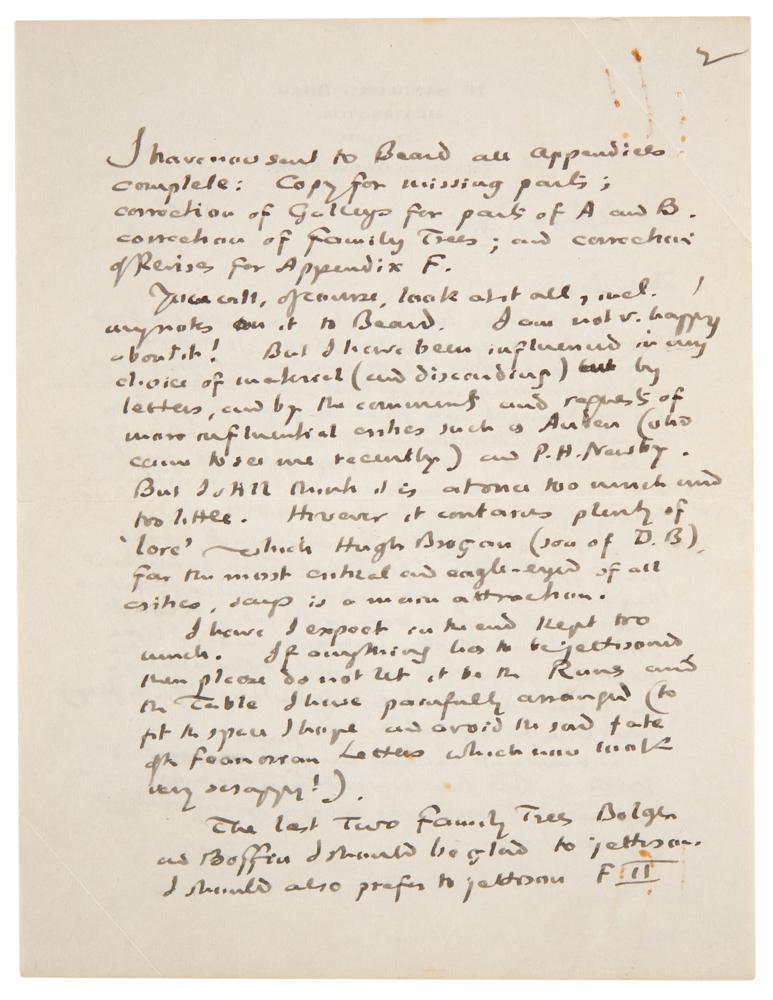 2
I have now sent to Beard all appendices
complete: Copy for missing parts;
correction of Galleys for parts of A and B.
correction of Family Trees; and correction
of Revises for Appendix F.
You will, of course, look at it all, incl.
any notes on it to Beard. I am not v. happy
about it! But I have been influenced in my
choice of material (and discarding) by
letters, and by the comments and requests of
more influential critics such as Auden (who
came to see me recently) and P.H. Newby.
But I still think it is at once too much and
too little. However it contains plenty of
'lore' which Hugh Brogan (son of D.B),
far the most critical and eagle-eyed of all
critics, says is a main attraction.
I have I expect in the end kept too
much. If anything has to be jettisoned
then please do not let it be the Runes and
the Table I have painfully arranged (to
fit the space I hope and avoid the sad fate
of the Feanorean Letters which now look
very scrappy!).
The last Two Family Trees Bolger
and Boffin I should be glad to jettison.
I should also prefer to jettison F II